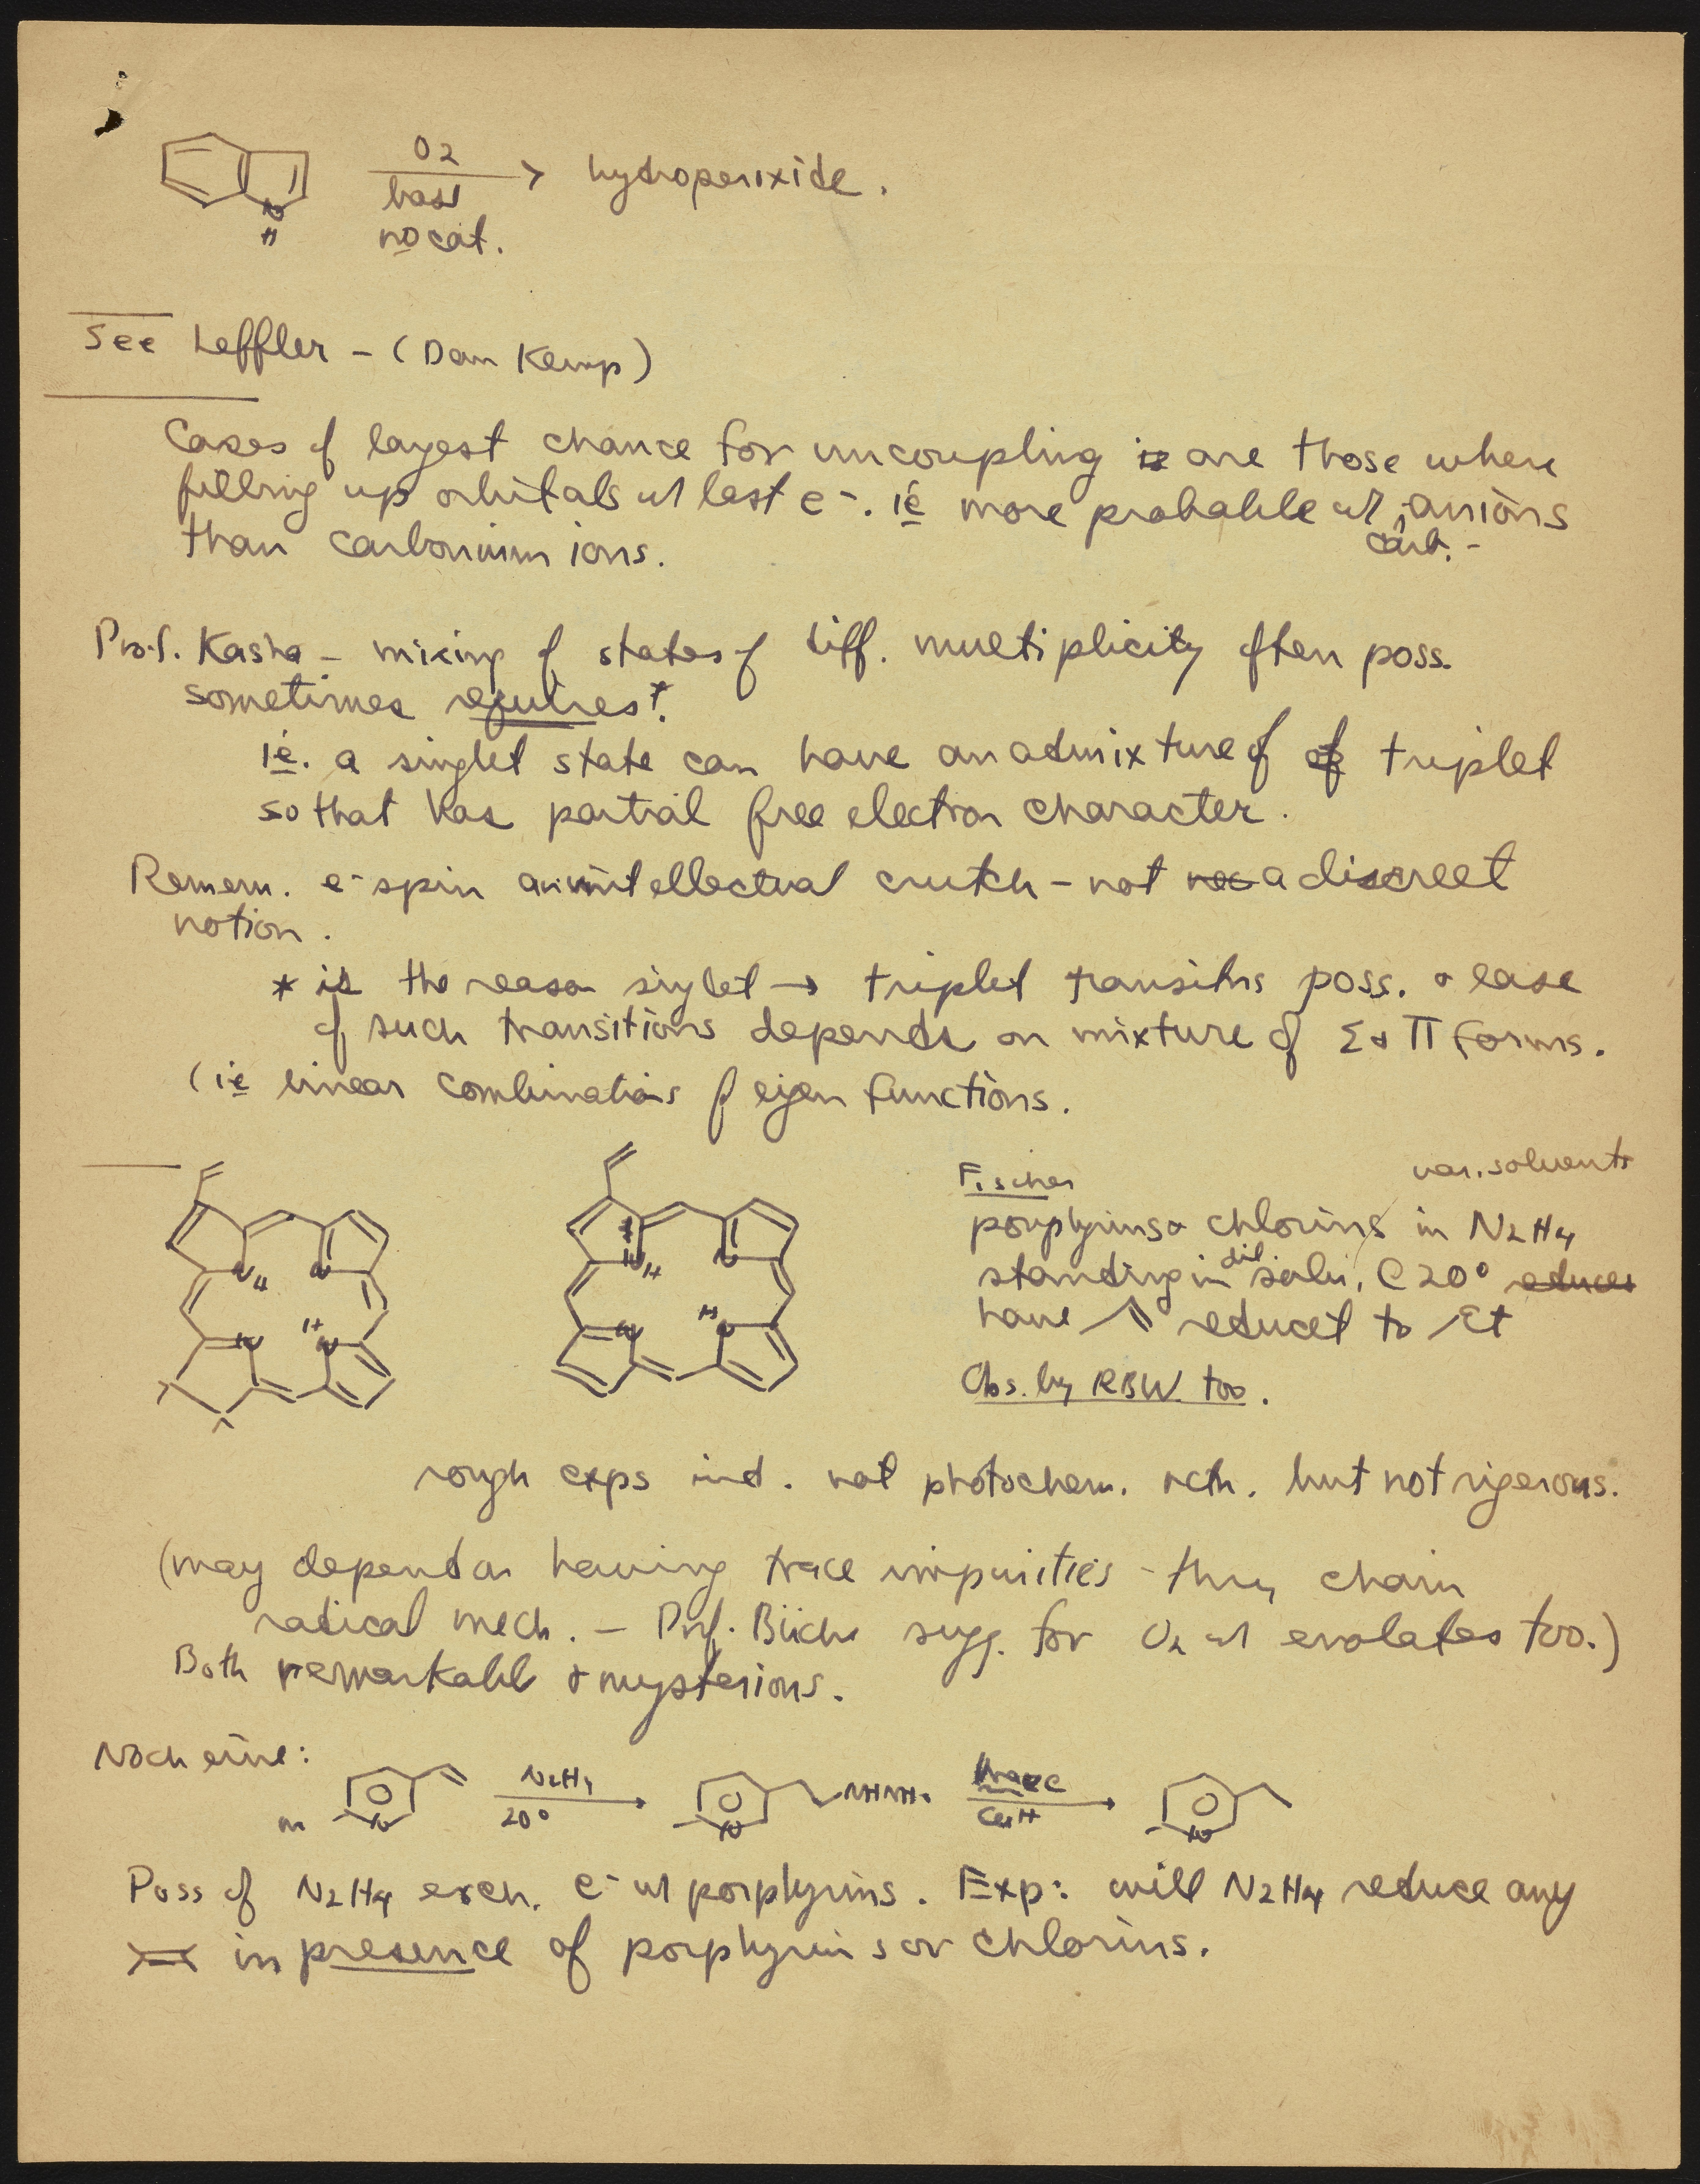 O2
base
no cat.
hydroperoxide.
N
H
See Leffler - (Dan Kemp)
Cases of largest chance for uncoupling is are those where
filling up orbitals w/ last e-. ie more probable w/ carb.- anions
than carbonium ions.
Prof. Kasha - mixing of states of diff. multiplicity often poss.
sometimes requires*.
ie. a singlet state can have an admixture of of triplet
so that has partial free electron character.
Remem. e- spin an intellectual crutch - not a discreet
notion.
* is the reason singlet → triplet transitns poss. & ease
of such transitions depends on mixture of Σ & Π forms.
(ie linear combinations of eigen functions.
Fischer
var. solvents
porphyrins & chlorins in N2H4
standing in dil soln. @ 20° reduces
have reduced to Et
Obs. by RBW too.
rough exps ind. not photochem. rctn. but not rigerous.
(may depend on having trace impurities - thru chain
radical mech. - Prof. Büchi sugg. for O2 w/ enolates too.)
Both remarkable & mysterious.
Noch eine:
N2H4
20°
NHNH2
C6H
N
Poss of N2H4 exch. e- w/ porphyrins. Exp: will N2H4 reduce any
in presence of porphyrins or chlorins.